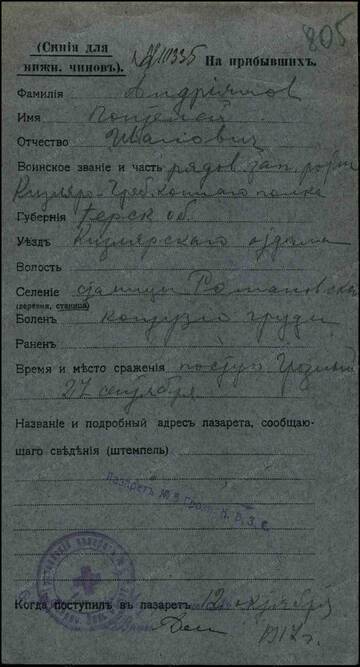 805
(Синія для
нижн. чиновъ).
№ 10335 На прибывшихъ.
Фамилія
Имя
Отчество Ивановичъ
Воинское званіе и часть рядов. зап.
Кизляро-Греб. коннаго полка
Губернія Терск. об.
Уѣздъ Кизлярскаго отдѣла
Волость
Селеніе станицы
(деревня, станица)
Боленъ контузія груди
Раненъ
Время и мѣсто сраженія поступ. Грозный
27 сентября
Названіе и подробный адресъ лазарета, сообщаю-
щаго свѣдѣнія (штемпель)
Лазаретъ № 3 Гроз.
Когда поступилъ въ лазаретъ 12 октября
191 г.